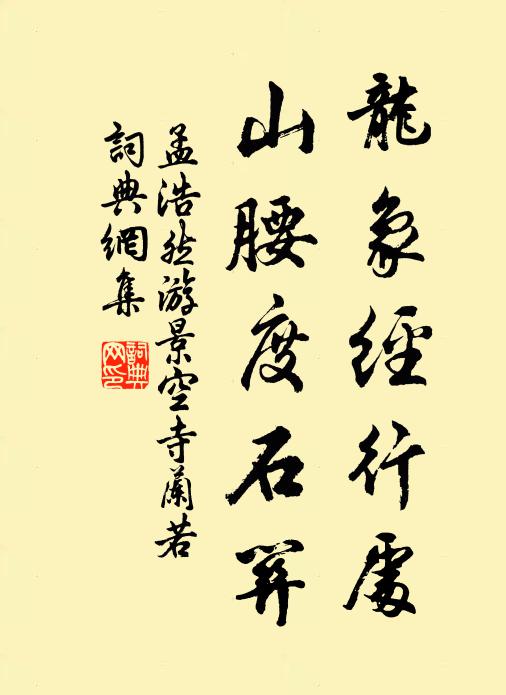 龍象經行處
山腰度石關
孟浩然游景空寺蘭若
詞典網集
詞典網印